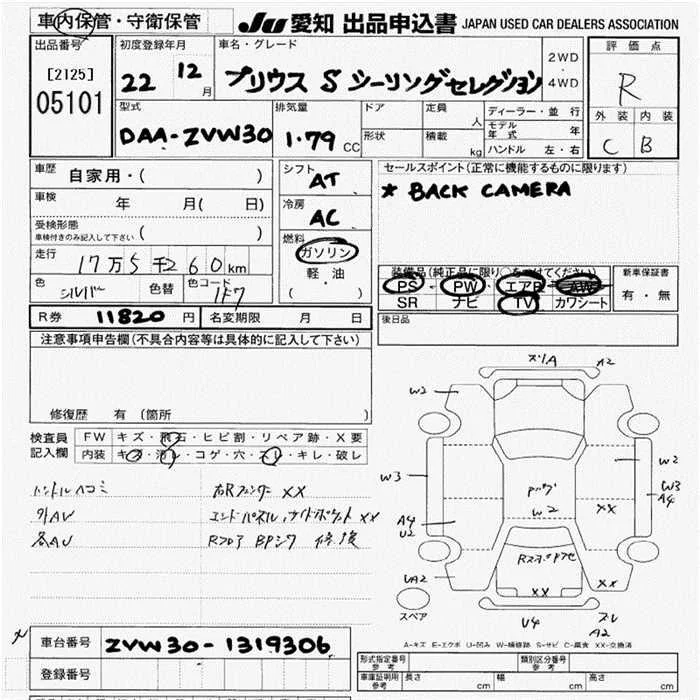 車内保管・守衛保管 JU 愛知 出品申込書 JAPAN USED CAR DEALERS ASSOCIATION
出品番号 初度登録年月 車名・グレード 評価点
[2125] 22 12月 プリウス S シーリングセレクション 2WD・4WD R
05101
型式 排気量 ドア 定員 ディーラー・並行 外装 内装
DAA-ZVW30 1.79CC 人 モデル年式 年 C B
形状 積載 kg ハンドル 左・右
車歴 自家用・( ) シフト AT セールスポイント(正常に機能するものに限ります)
車検 年 月( 日) 冷房 AC * BACK CAMERA
受検形態
車検付きのみ記入して下さい ( )
燃料 ガソリン
軽・油
( )
走行 17万5千260km
装備品(純正品に限り○をつけてください) 新車保証書
色 シルバー 色替 色コード 1F7 PS・PW・エアB・AW 有・無
SR ナビ TV カワシート
R券 11820円 名変期限 月 日 後日品
注意事項申告欄(不具合内容等は具体的に記入して下さい)
修復歴 有 (箇所
検査員記入欄 FW キズ・飛石・ヒビ割・リペア跡・X要
内装 キズ・汚レ・コゲ・穴・スレ・キレ・破レ
ハンドルヘコミ 右Rフェンダー XX
外AU エンドパネル,サイドポケット XX
各AU Rフロア BPシワ 修復
スリA A2
W3
W2
W3 W3
A4
アップ
W2
A4
U2
XX
UA2 XX XX
スペア U4 スレ
A2
A-キズ E-エクボ U-凹み W-補修跡 S-サビ C-腐食 XX-交換済
車台番号 ZVW30-1319306
登録番号
型式指定番号 参考 類別区分番号 参考
車庫証明用 参考 長さ cm 幅 cm 高さ cm